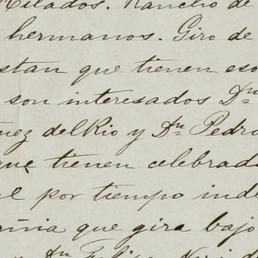 Estados. Rancho de
hermanos. Giro de
stan que tienen eso
son interesados Dn
uez del Rio y Dn Pedro
que tienen celebrado
l por tiempo inde
añia que gira bajo
Dn Felipe